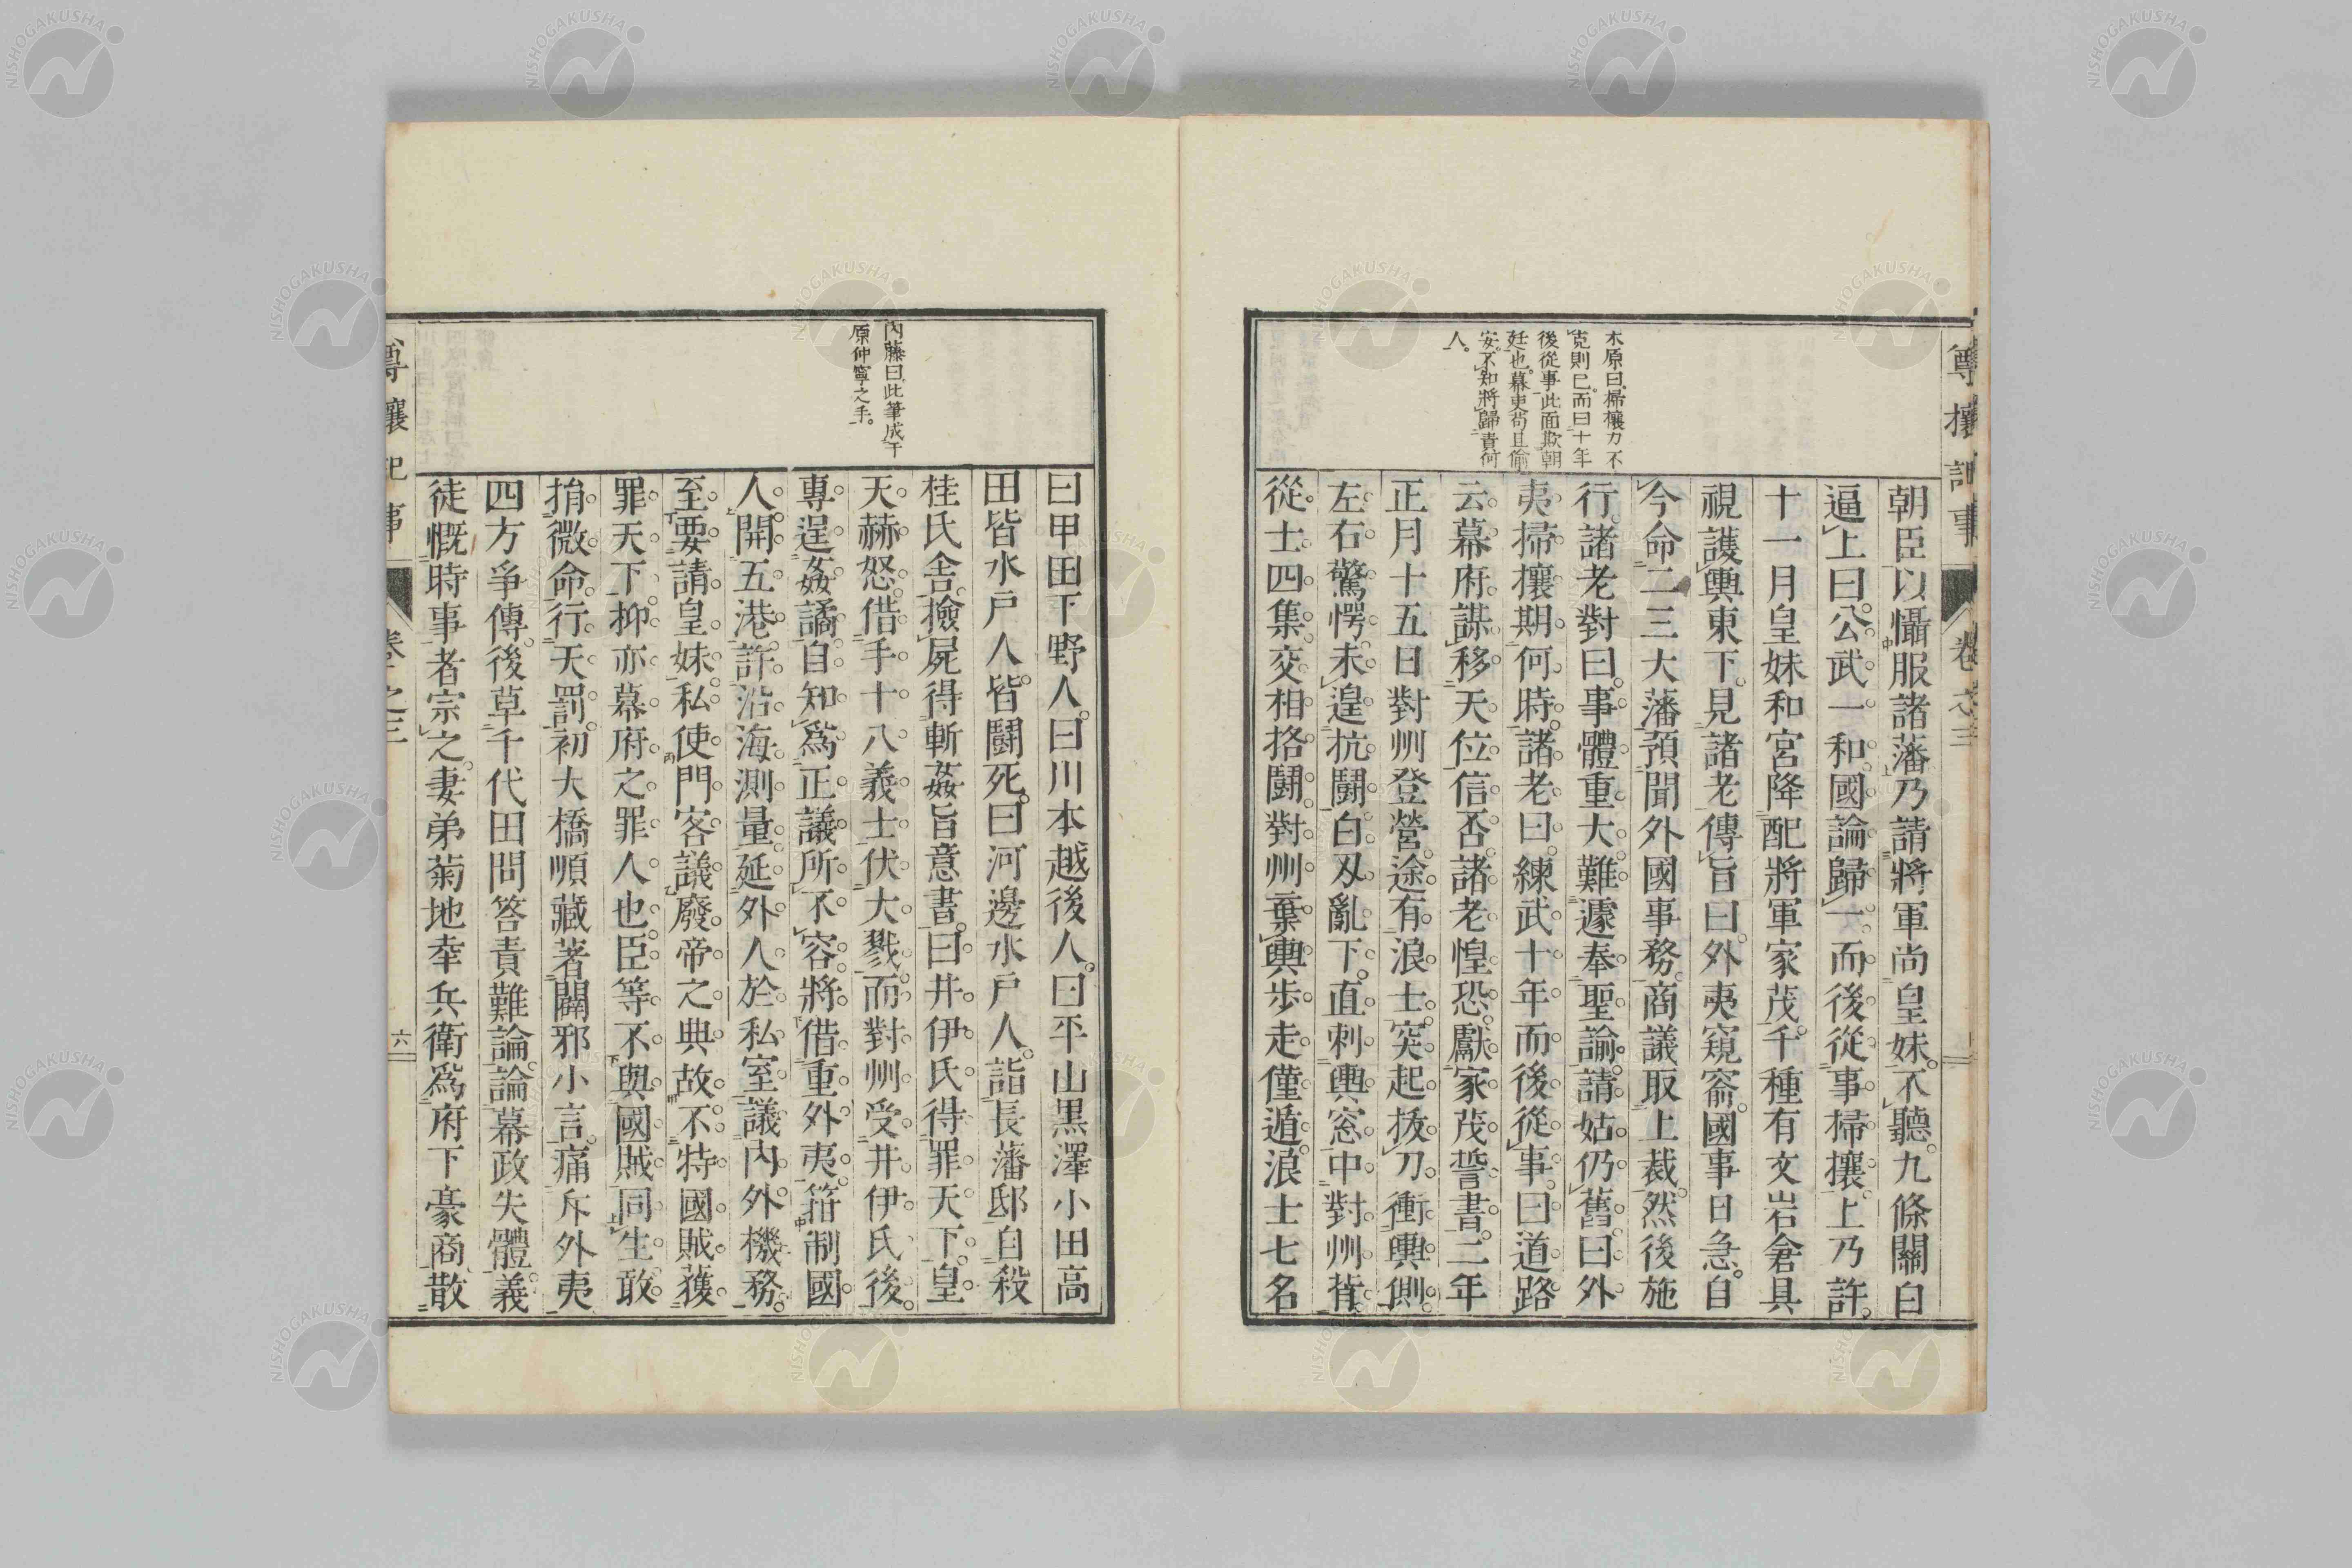 尊攘記事
卷之三
木原曰掃攘力不
克則已。而曰十年
後從事此面欺朝
廷也。幕吏苟且偷
安。不知將歸責何
人。
朝臣以懾服諸藩乃請將軍尚皇妹。不聽。九條關白
逼上曰。公武一和。國論歸一。而後從事掃攘。上乃許。
十一月皇妹和宮降配將軍家茂。千種有文岩倉具
視護輿東下。見諸老傳旨曰。外夷窺窬。國事日急。自
今命二三大藩預聞外國事務。商議取上裁。然後施
行。諸老對曰。事體重大。難遽奉聖諭。請姑仍舊。曰外
夷掃攘期何時。諸老曰。練武十年而後從事。曰道路
云。幕府謀移天位。信否。諸老惶恐。獻家茂誓書。二年
正月十五日對州登營。途有浪士。突起拔刀衝輿側。
左右驚愕。未遑抗鬪。白刃亂下。直刺輿窓。中對州背。
從士四集。交相挌鬪。對州棄輿步走僅遁。浪士七名
內藤曰此筆成于
原仲寧之手。
曰甲田下野人。曰川本越後人。曰平山黑澤小田高
田皆水戶人。皆鬪死。曰河邊水戶人。詣長藩邸自殺
桂氏舍。撿屍得斬姦旨意書。曰井伊氏得罪天下。皇
天赫怒。借手十八義士伏大戮。而對州受井伊氏後。
專逞姦譎。自知爲正議所不容。將借重外夷。箝制國
人。開五港。許沿海測量。延外人於私室。議內外機務。
至要請皇妹。私使門客議廢帝之典故。不特國賊。獲
罪天下。抑亦幕府之罪人也。臣等不與國賊同生。敢
捐微命行天罰。初大橋順藏著闢邪小言。痛斥外夷
四方爭傳。後草千代田問答責難論。論幕政失體。義
徒慨時事者宗之。妻弟菊地幸兵衛爲府下豪商。散
尊攘記事
卷之三
六